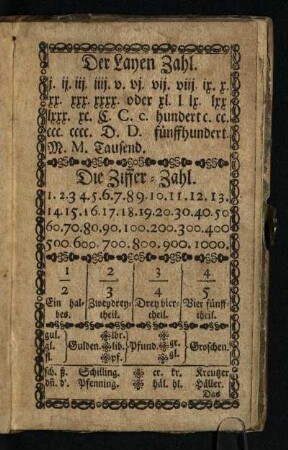 Der Layen Zahl.
j. ij. iij. iiij. v. vj. vij. viij. ix. x.
xx. xxx. xxxx. oder xl. l lx. lxx
lxxx. xc. C. C. c. hundert c. cc.
ccc. cccc. D. D. fünffhundert.
M. M. Tausend.
Die Ziffer-Zahl.
1. 2. 3 4. 5. 6. 7. 8 9. 10. 11. 12. 13.
14. 15. 16. 17. 18. 19. 20. 30. 40. 50
60. 70. 80. 90. 100. 200. 300. 400
500. 600. 700. 800. 900. 1000.
1 2 3 4
2 3 4 5
Ein hal- Zwey drey- Drey vier- Vier fünff-
bes. theil. theil. theil.
gul. lbr.
gl. Gulden. lib. Pfund. gr. Groschen.
fl. pf. gl.
sch. ß. Schilling. cr. kr. Kreutzer
dñ. d'. Pfenning. häl. hl. Häller.
Das